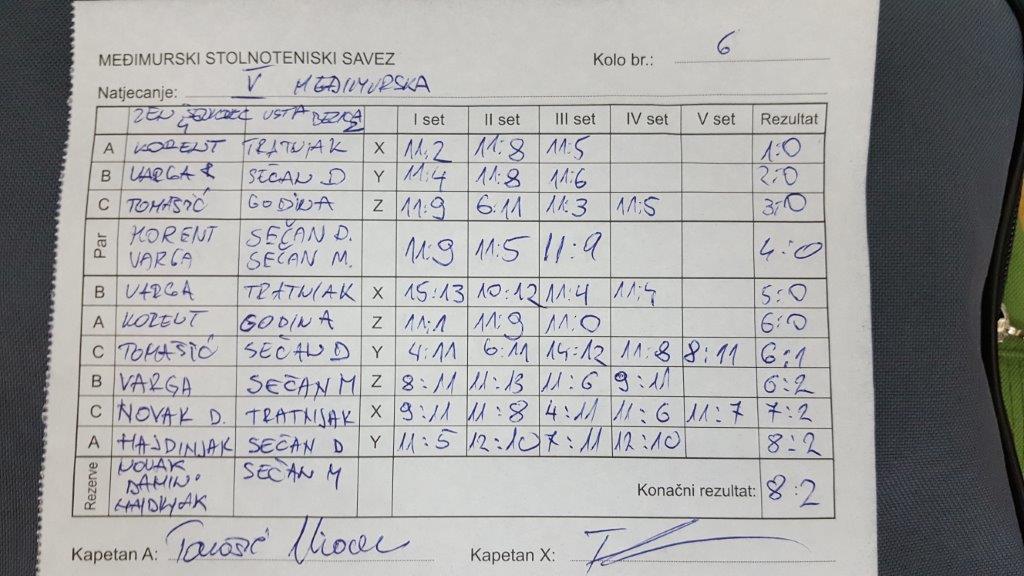 MEĐIMURSKI STOLNOTENISKI SAVEZ Kolo br.: 6
Natjecanje: V MEĐIMURSKA
I set II set III set IV set V set Rezultat
A KORENT TRATNJAK X 11:2 11:8 11:5 1:0
B VARGA SEČAN D Y 11:4 11:8 11:6 2:0
C TOMAŠIĆ GODINA Z 11:9 6:11 11:3 11:5 3:0
Par KORENT SEČAN D. 11:9 11:5 11:9 4:0
VARGA SEČAN M.
B VARGA TRATNJAK X 15:13 10:12 11:4 11:4 5:0
A KORENT GODINA Z 11:1 11:9 11:0 6:0
C TOMAŠIĆ SEČAN D Y 4:11 6:11 14:12 11:8 8:11 6:1
B VARGA SEČAN M Z 8:11 11:13 11:6 9:11 6:2
C NOVAK D. TRATNJAK X 9:11 11:8 4:11 11:6 11:7 7:2
A HAJDINJAK SEČAN D Y 11:5 12:10 7:11 12:10 8:2
Rezerve NOVAK SEČAN M Konačni rezultat: 8:2
Kapetan A: Tomašić Kapetan X: